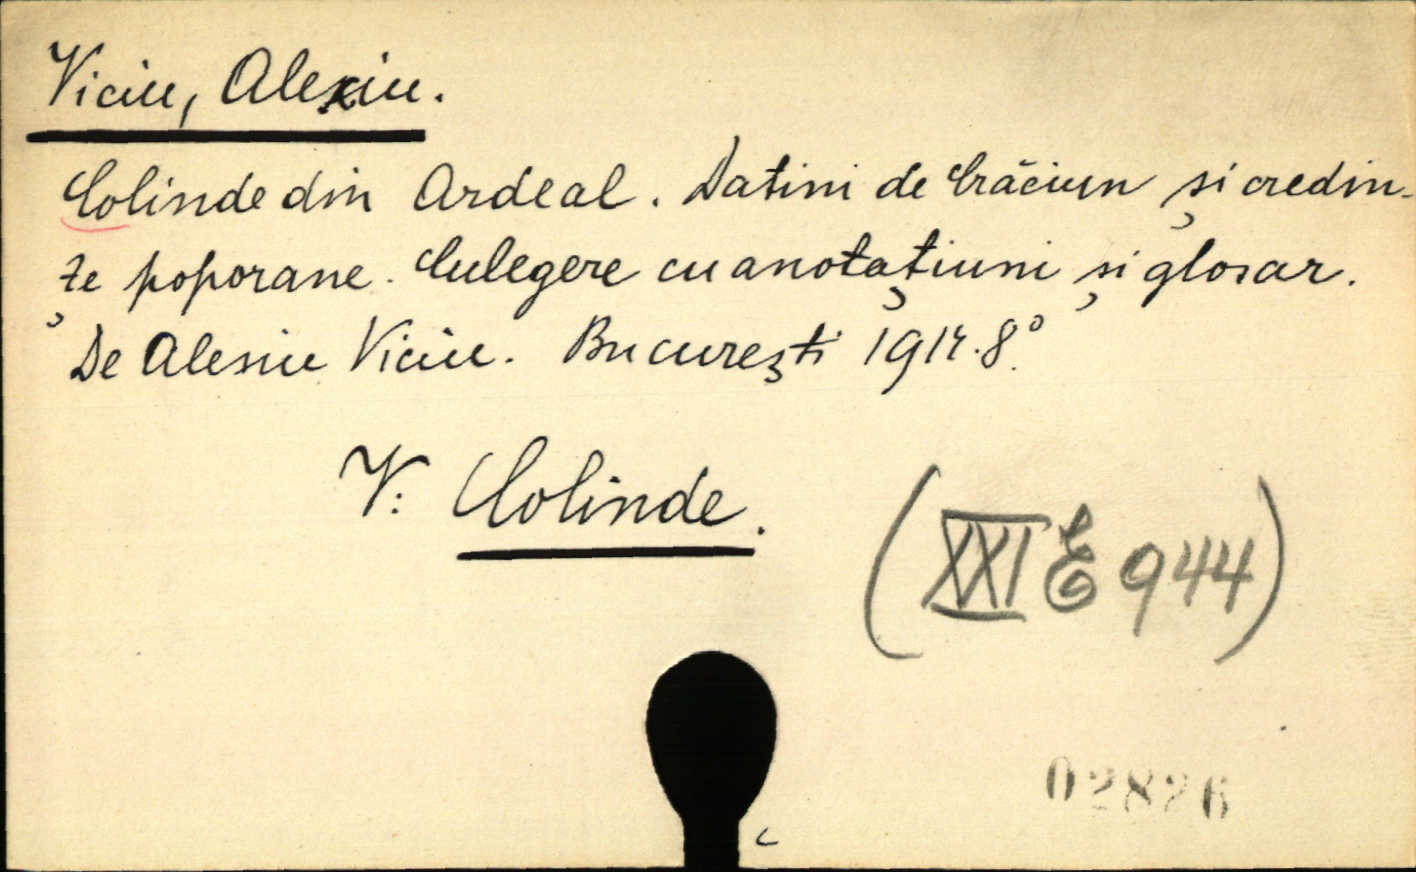 Viciu, Alexiu.
Colinde din Ardeal. Datini de Crăciun și credin-
țe poporane. Culegere cu anotațiuni și glosar.
De Alesiu Viciu. București 1914. 8°.
V: Colinde.
(XXI E 944)
02826